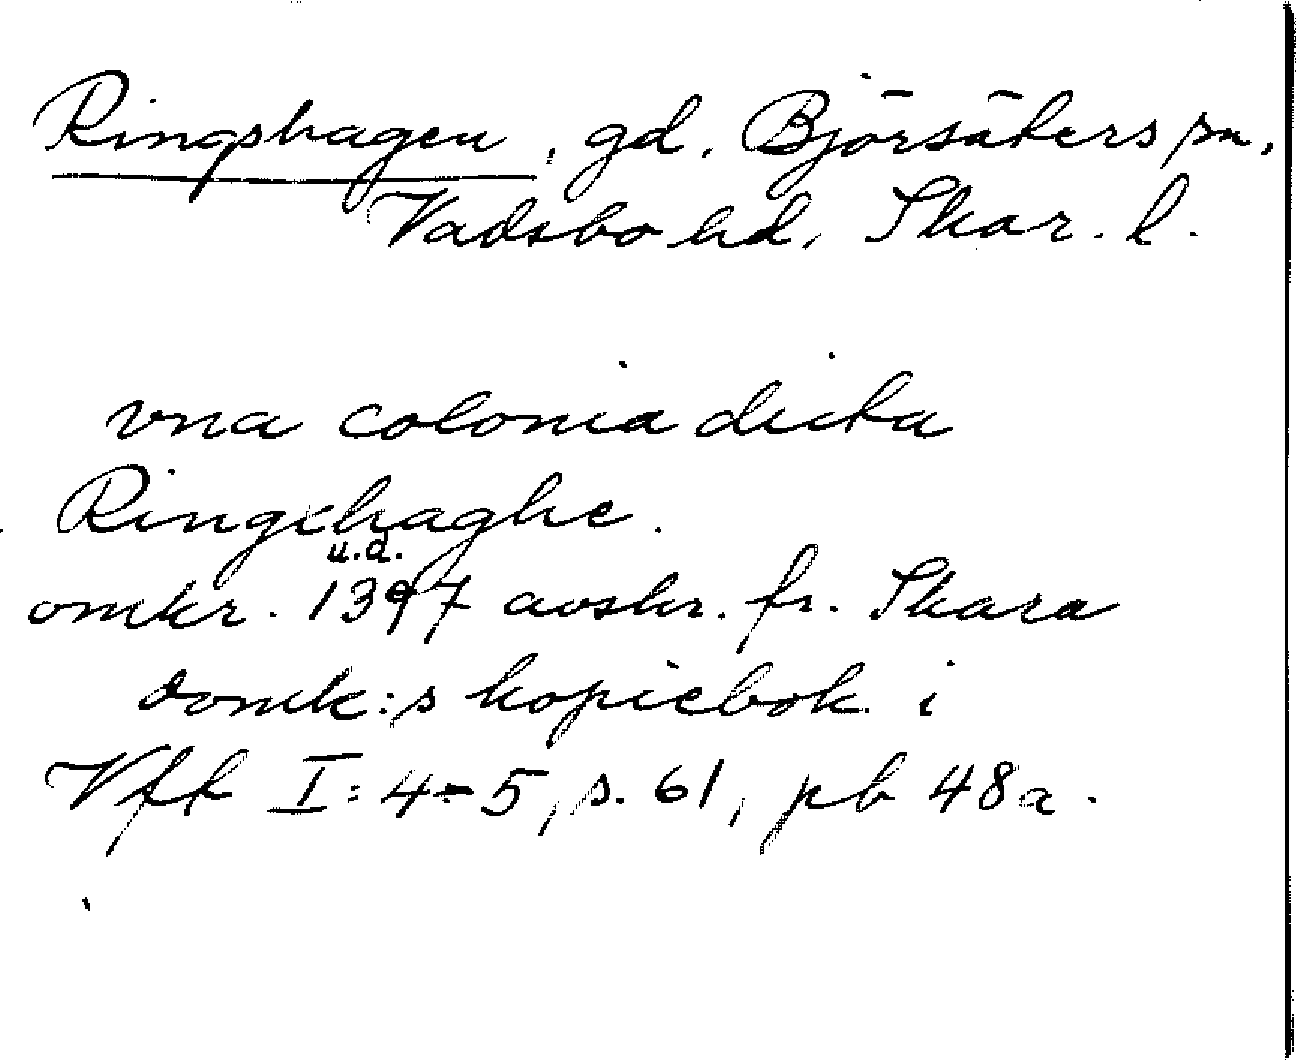 Ringshagen, gd. Björsäters sn,
Vadsbo hd, Skar. l.
vna colonia dicta
Ringxhaghe.
u.d.
omkr. 1397 avskr. fr. Skara
domk:s kopiebok i
Vff I: 4-5, s. 61, pb 48a.